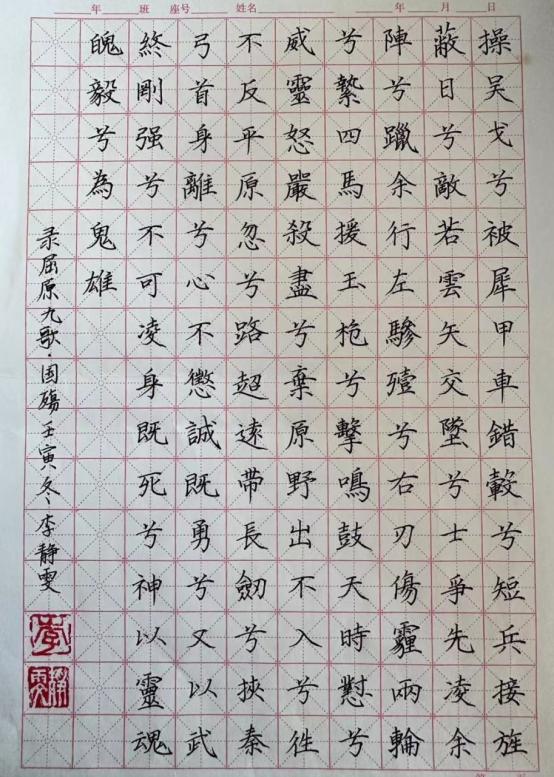 年 班 座号 姓名 年 月 日
操吴戈兮被犀甲車錯轂兮短兵接旌
蔽日兮敵若雲矢交墜兮士爭先凌余
陣兮躐余行左驂殪兮右刃傷霾兩輪
兮縶四馬援玉枹兮擊鳴鼓天時懟兮
威靈怒嚴殺盡兮棄原野出不入兮往
不反平原忽兮路超遠帶長劒兮挾秦
弓首身離兮心不懲誠既勇兮又以武
終剛强兮不可凌身既死兮神以靈魂
魄毅兮為鬼雄
录屈原九歌·国殤壬寅冬李静雯
李
静雯